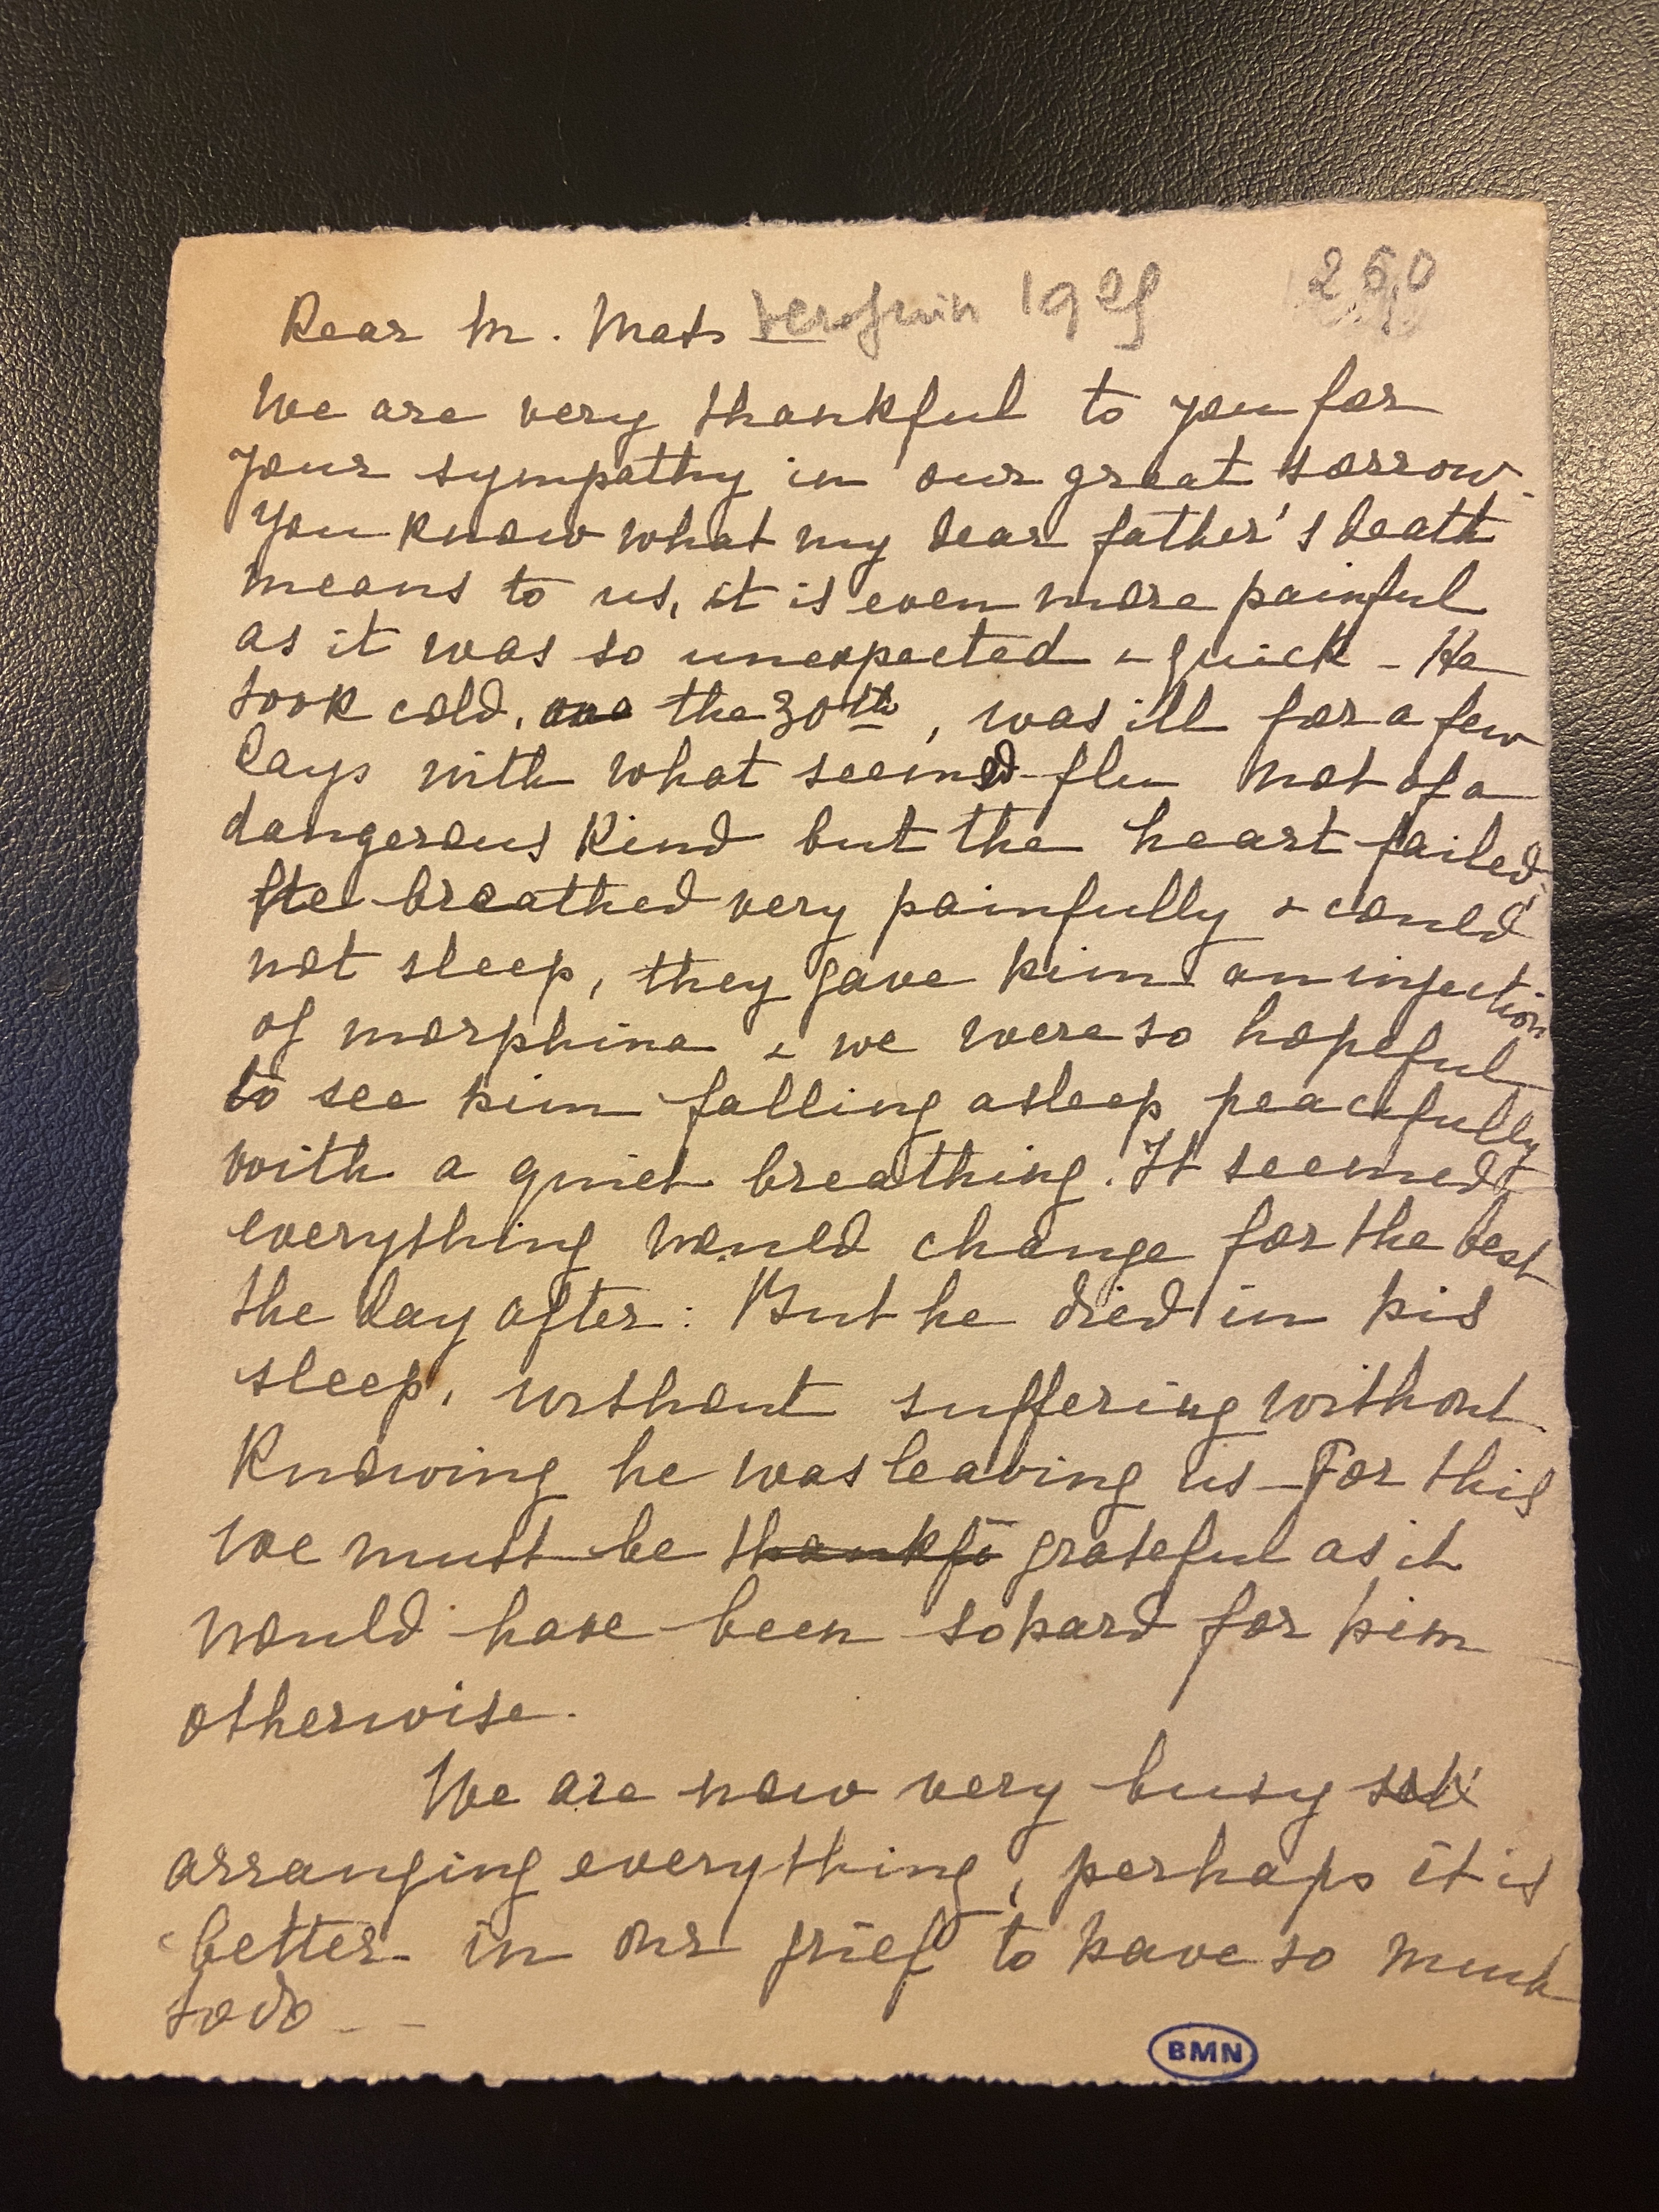 Dear M. Mats 1925 260
We are very thankful to you for
your sympathy in our great sorrow.
You know what my dear father's death
means to us, it is even more painful
as it was so unexpected & quick - He
took cold, the 30th, was ill for a few
days with what seemed flu not of a
dangerous kind but the heart failed.
He breathed very painfully & could
not sleep, they gave him an injection
of morphine & we were so hopeful
to see him falling asleep peacefully
with a quiet breathing. It seemed
everything would change for the best
the day after: But he died in his
sleep, without suffering without
knowing he was leaving us - For this
we must be thankf grateful as it
would have been so hard for him
otherwise.
We are now very busy
arranging everything, perhaps it is
better in our grief to have so much
to do - -
BMN